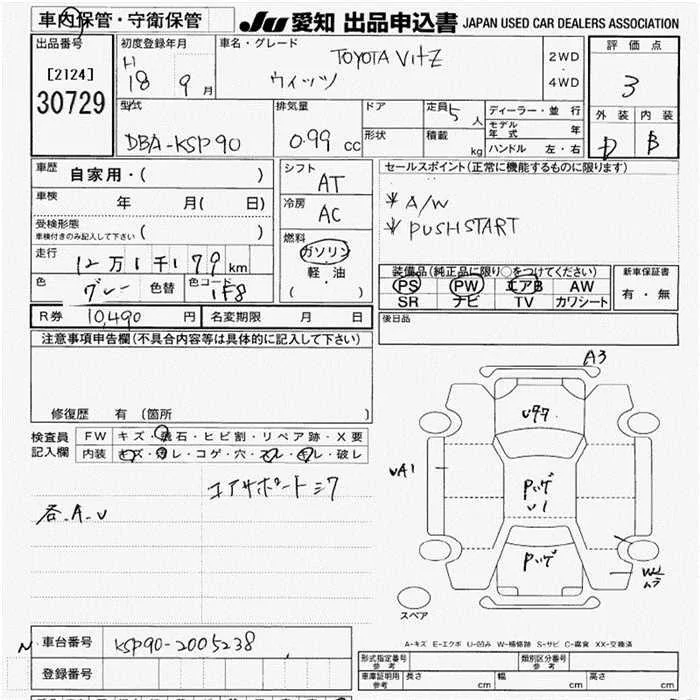 車内保管・守衛保管
JU 愛知 出品申込書 JAPAN USED CAR DEALERS ASSOCIATION
出品番号 初度登録年月 車名・グレード 評価点
[2124] H TOYOTA VitZ 2WD
30729 18 9月 ヴィッツ 4WD 3
型式 排気量 ドア 定員 5人 ディーラー・並行 外装 内装
モデル年式 年
DBA-KSP90 0.99 cc 形状 積載 kg ハンドル 左・右 D B
車歴 自家用・( ) シフト AT セールスポイント(正常に機能するものに限ります)
車検 年 月( 日) 冷房 AC * A/W
受検形態 * PUSHSTART
車検付きのみ記入して下さい ( ) 燃料
走行 12万1千179 km ガソリン 装備品(純正品に限り○をつけてください) 新車保証書
軽・油 PS PW エアB AW 有・無
色 グレー 色替 色コード 1F8 ( ) SR ナビ TV カワシート
R券 10,490 円 名変期限 月 日 後日品
注意事項申告欄(不具合内容等は具体的に記入して下さい)
修復歴 有 (箇所 )
検査員 FW キズ・飛石・ヒビ割・リペア跡・X要
記入欄 内装 キズ・汚レ・コゲ・穴・スレ・キレ・破レ
各.A.U
A3
UA1
スペア
A-キズ E-エクボ U-凹み W-補修跡 S-サビ C-腐食 XX-交換済
車台番号 KSP90-2005238
登録番号
形式指定番号 参考 類別区分番号 参考
車庫証明用 参考 長さ cm 幅 cm 高さ cm